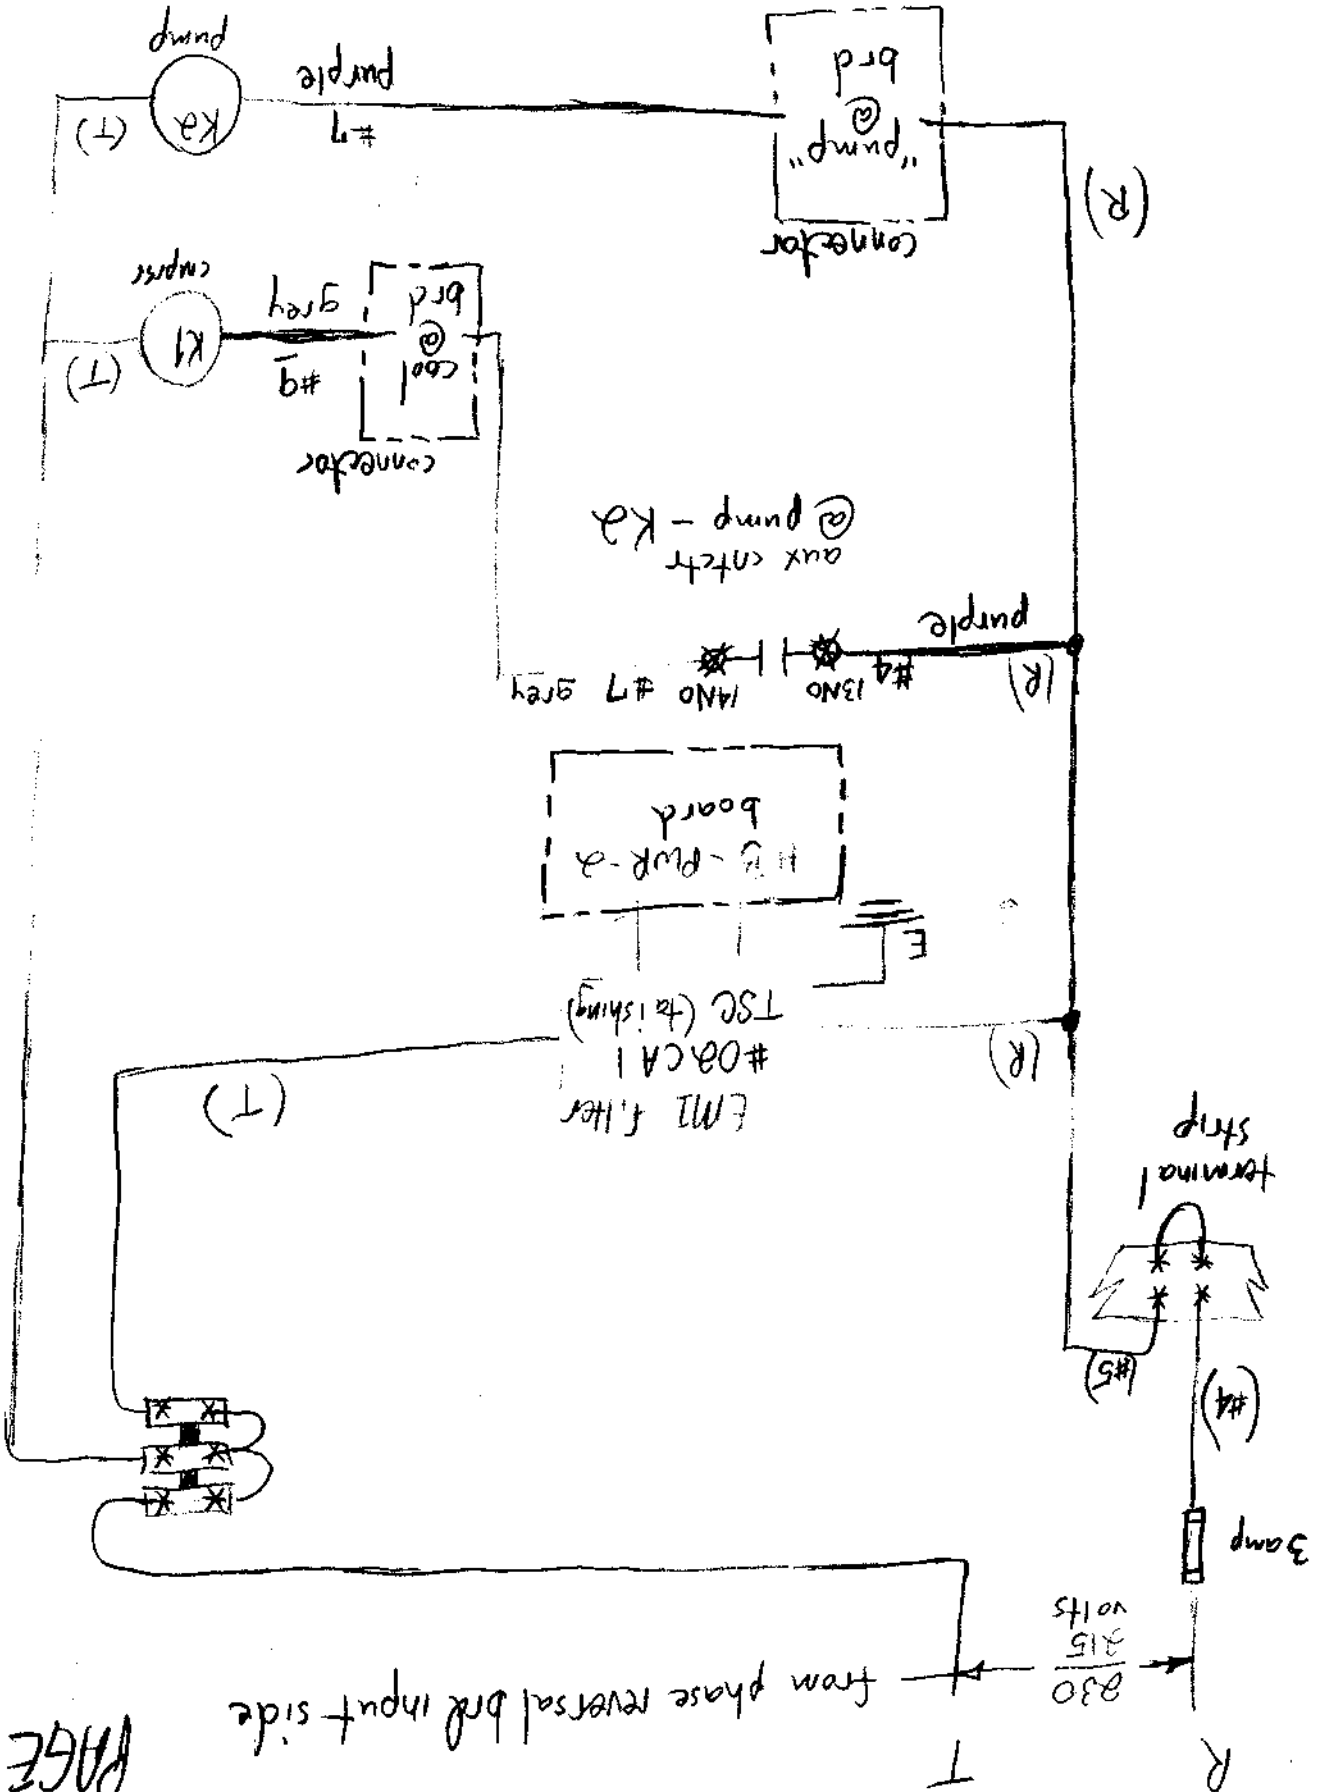 PAGE
R
T
from phase reversal brd input side
230
215
volts
3 amp
(#4)
(#5)
terminal
strip
(T)
(R)
EMI filter
#02CA1
TSC (taishing)
E
PWR-2
board
(R)
purple
#4
13NO
14NO
#7 grey
aux cntctr
@ pump - K2
connector
cool
@
brd
#9
grey
K1
cmprsr
(T)
(R)
connector
"pump"
@
brd
#7
purple
K2
pump
(T)